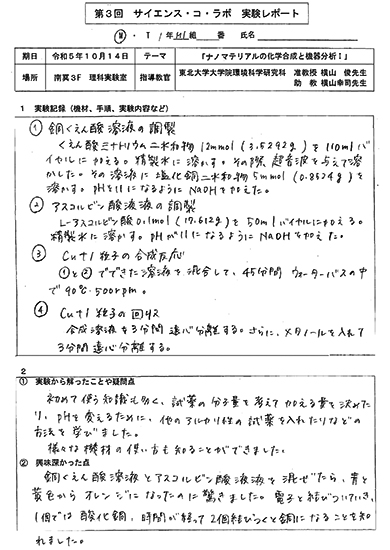 第3回 サイエンス・コ・ラボ 実験レポート
1年 H1組 番 氏名
期日 令和5年10月14日 テーマ 「ナノマテリアルの化学合成と機器分析Ⅰ」
場所 南冥3F 理科実験室 指導教官 東北大学大学院環境科学研究科 准教授 横山 俊先生
助教 横山幸司先生
1 実験記録(機材、手順、実験内容など)
① 銅くえん酸溶液の調製
くえん酸三ナトリウム二水和物 12mmol (3.5292g) を110mlバ
イヤルに加える。精製水に溶かす。その際、超音波を与えて溶
かした。その溶液に塩化銅二水和物 5mmol (0.8524g) を
溶かす。pHを11になるようにNaOHを加えた。
② アスコルビン酸溶液の調製
L-アスコルビン酸 0.1mol (17.612g) を50mlバイヤルに加える。
精製水に溶かす。pHが11になるようにNaOHを加えた。
③ Cu+1粒子の合成反応
①と②でできた溶液を混合して、45分間ウォーターバスの中
で90℃・500rpm。
④ Cu+1粒子の回収
合成溶液を3分間遠心分離する。さらに、メタノールを入れて
3分間遠心分離する。
2
① 実験から解ったことや疑問点
初めて使う知識も多く、試薬の分子量を考えて加える量を決めた
り、pHを変えるために、他のアルカリ性の試薬を入れたりなどの
方法を学びました。
様々な機材の使い方も知ることができました。
② 興味深かった点
銅くえん酸溶液とアスコルビン酸溶液を混ぜたら、青と
黄色からオレンジになったのに驚きました。電子と結びついていき、
1個では酸化銅、時間が経って2個結びつくと銅になることを知
れました。